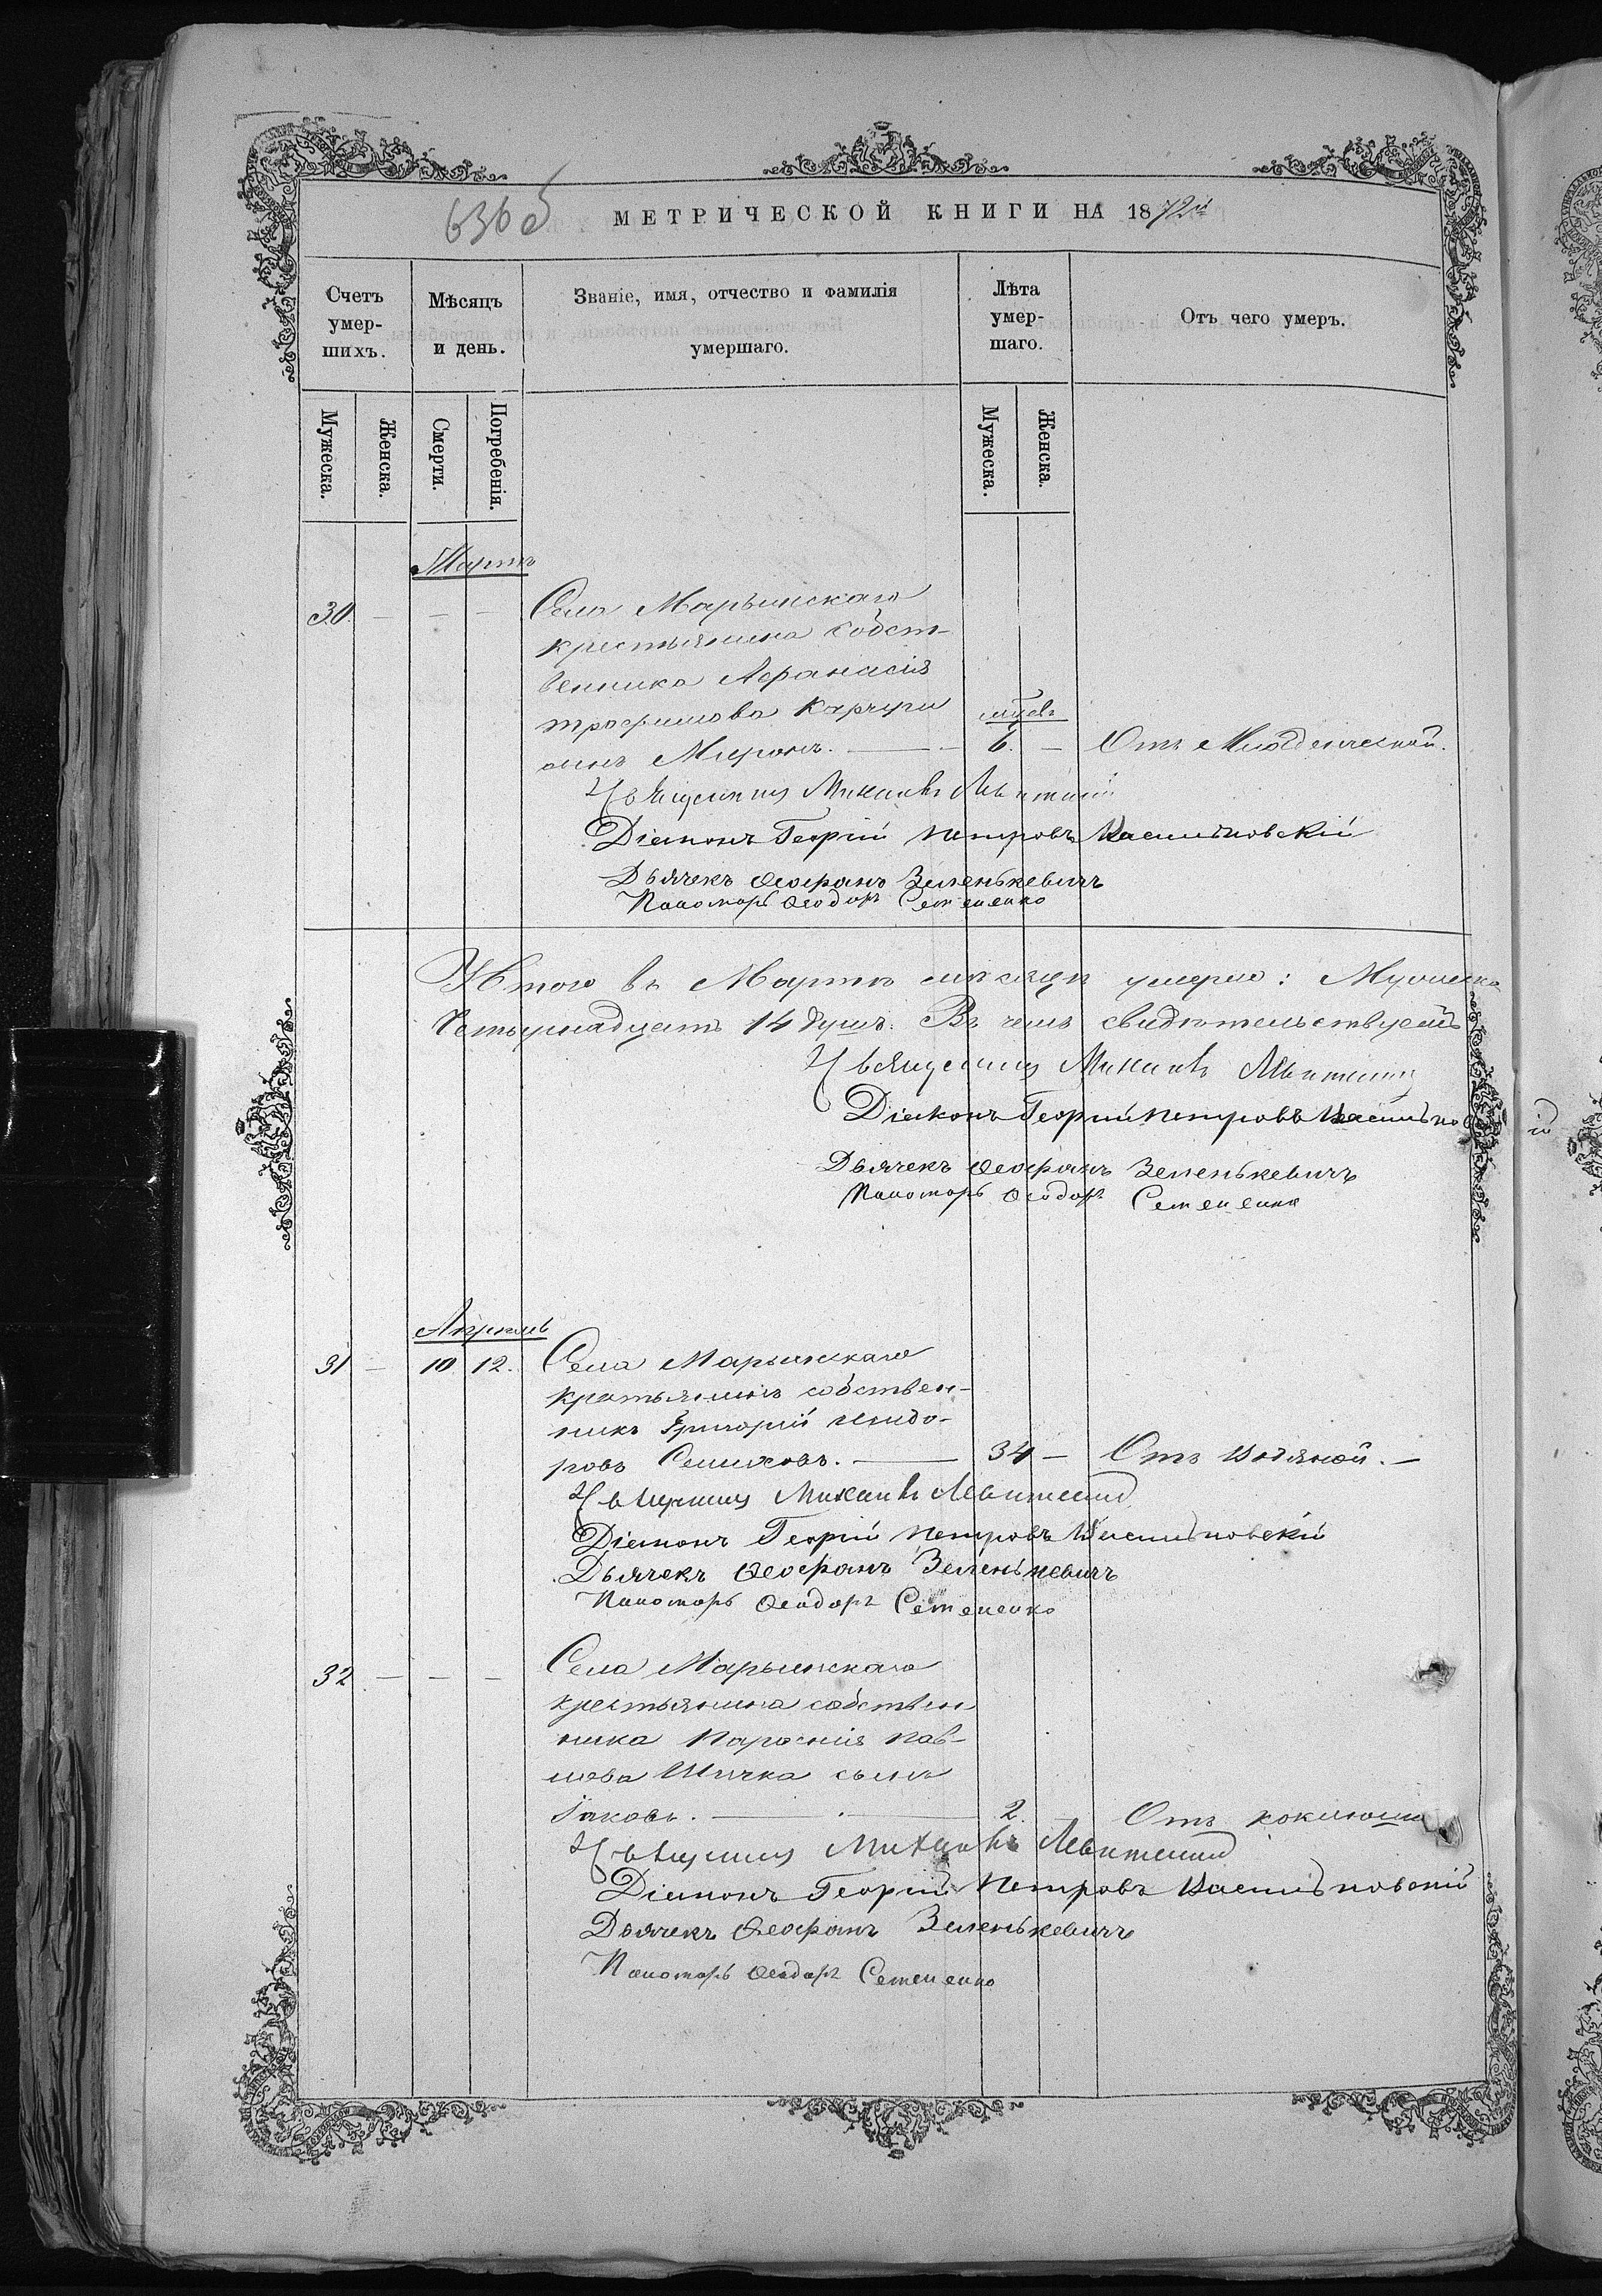 636 об
МЕТРИЧЕСКОЙ КНИГИ НА 1872й
Счетъ умер-шихъ.
Мѣсяцъ и день.
Званіе, имя, отчество и фамилія умершаго.
Лѣта умер-шаго.
Отъ чего умеръ.
Мужеска.
Женска.
Смерти.
Погребенія.
Мужеска.
Женска.
Мартъ
30 — — — Села Марьинскаго
крестьянина собст-
венника Афанасія
Трофимова
сынъ Миронъ. — 6. — Отъ Младенческой.
Священникъ Михаилъ Левитскій
Діаконъ Георгій Петровъ Васильковскій
Дьячекъ Ѳеофанъ Зеленькевичъ
Пономарь Ѳеодоръ Семененко
Итого въ Мартѣ мѣсяцѣ умерло: Мужеска
Четырнадцать 14 душъ. Въ чемъ свидѣтельствуемъ
Священникъ Михаилъ Левитскій
Діаконъ Георгій Петровъ Васильковскій
Дьячекъ Ѳеофанъ Зеленькевичъ
Пономарь Ѳеодоръ Семененко
Апрѣль
31 — 10 12. Села Марьинскаго
крестьянинъ собствен-
никъ Григорій Исидо-
ровъ Семиховъ. — 34 — Отъ Водяной. —
Священникъ Михаилъ Левитскій
Діаконъ Георгій Петровъ Васильковскій
Дьячекъ Ѳеофанъ Зеленькевичъ
Пономарь Ѳеодоръ Семененко
32 — — — Села Марьинскаго
крестьянина собствен
ника Парѳенія Пав-
лова Шичка сынъ
Іаковъ. — 2. — Отъ коклюша
Священникъ Михаилъ Левитскій
Діаконъ Георгій Петровъ Васильковскій
Дьячекъ Ѳеофанъ Зеленькевичъ
Пономарь Ѳеодоръ Семененко